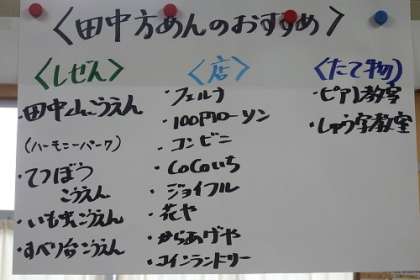 〈田中方めんのおすすめ〉
〈しぜん〉
・田中山こうえん
(ハーモニーパーク)
・てつぼう
こうえん
・いも虫こうえん
・すべり台こうえん
〈店〉
・フェルナ
・100円ローソン
・コンビニ
・CoCoいち
・ジョイフル
・花や
・からあげや
・コインランドリー
〈たて物〉
・ピアノ教室
・しゅう字教室